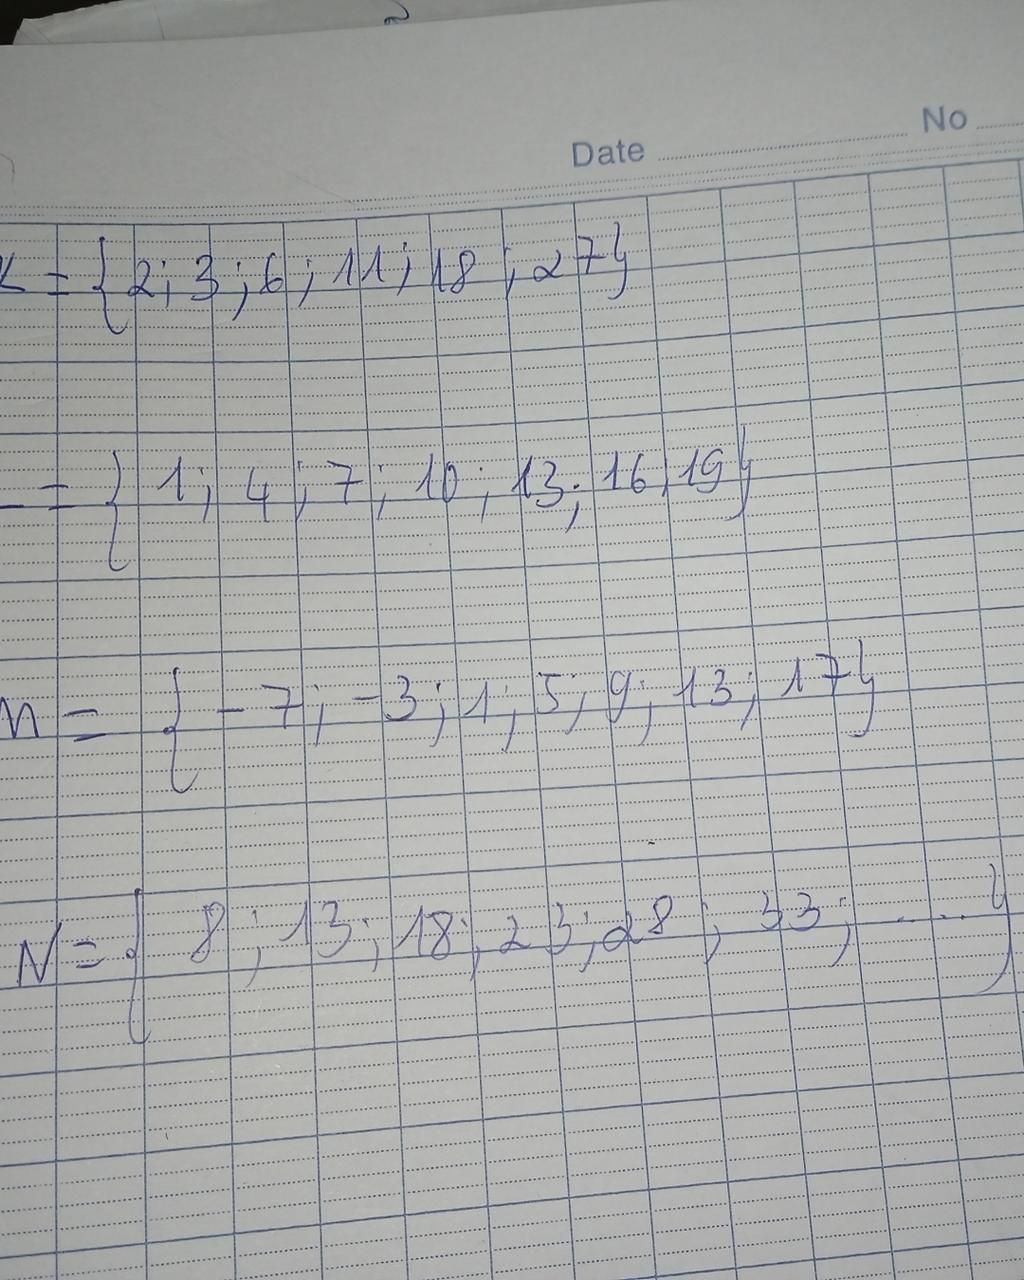 Date No
K = {2; 3; 6; 11; 18; 27}
= { 1; 4; 7; 10; 13; 16; 19}
M = { -7; -3; 1; 5; 9; 13; 17}
N = { 8; 13; 18; 23; 28; 33; ....}